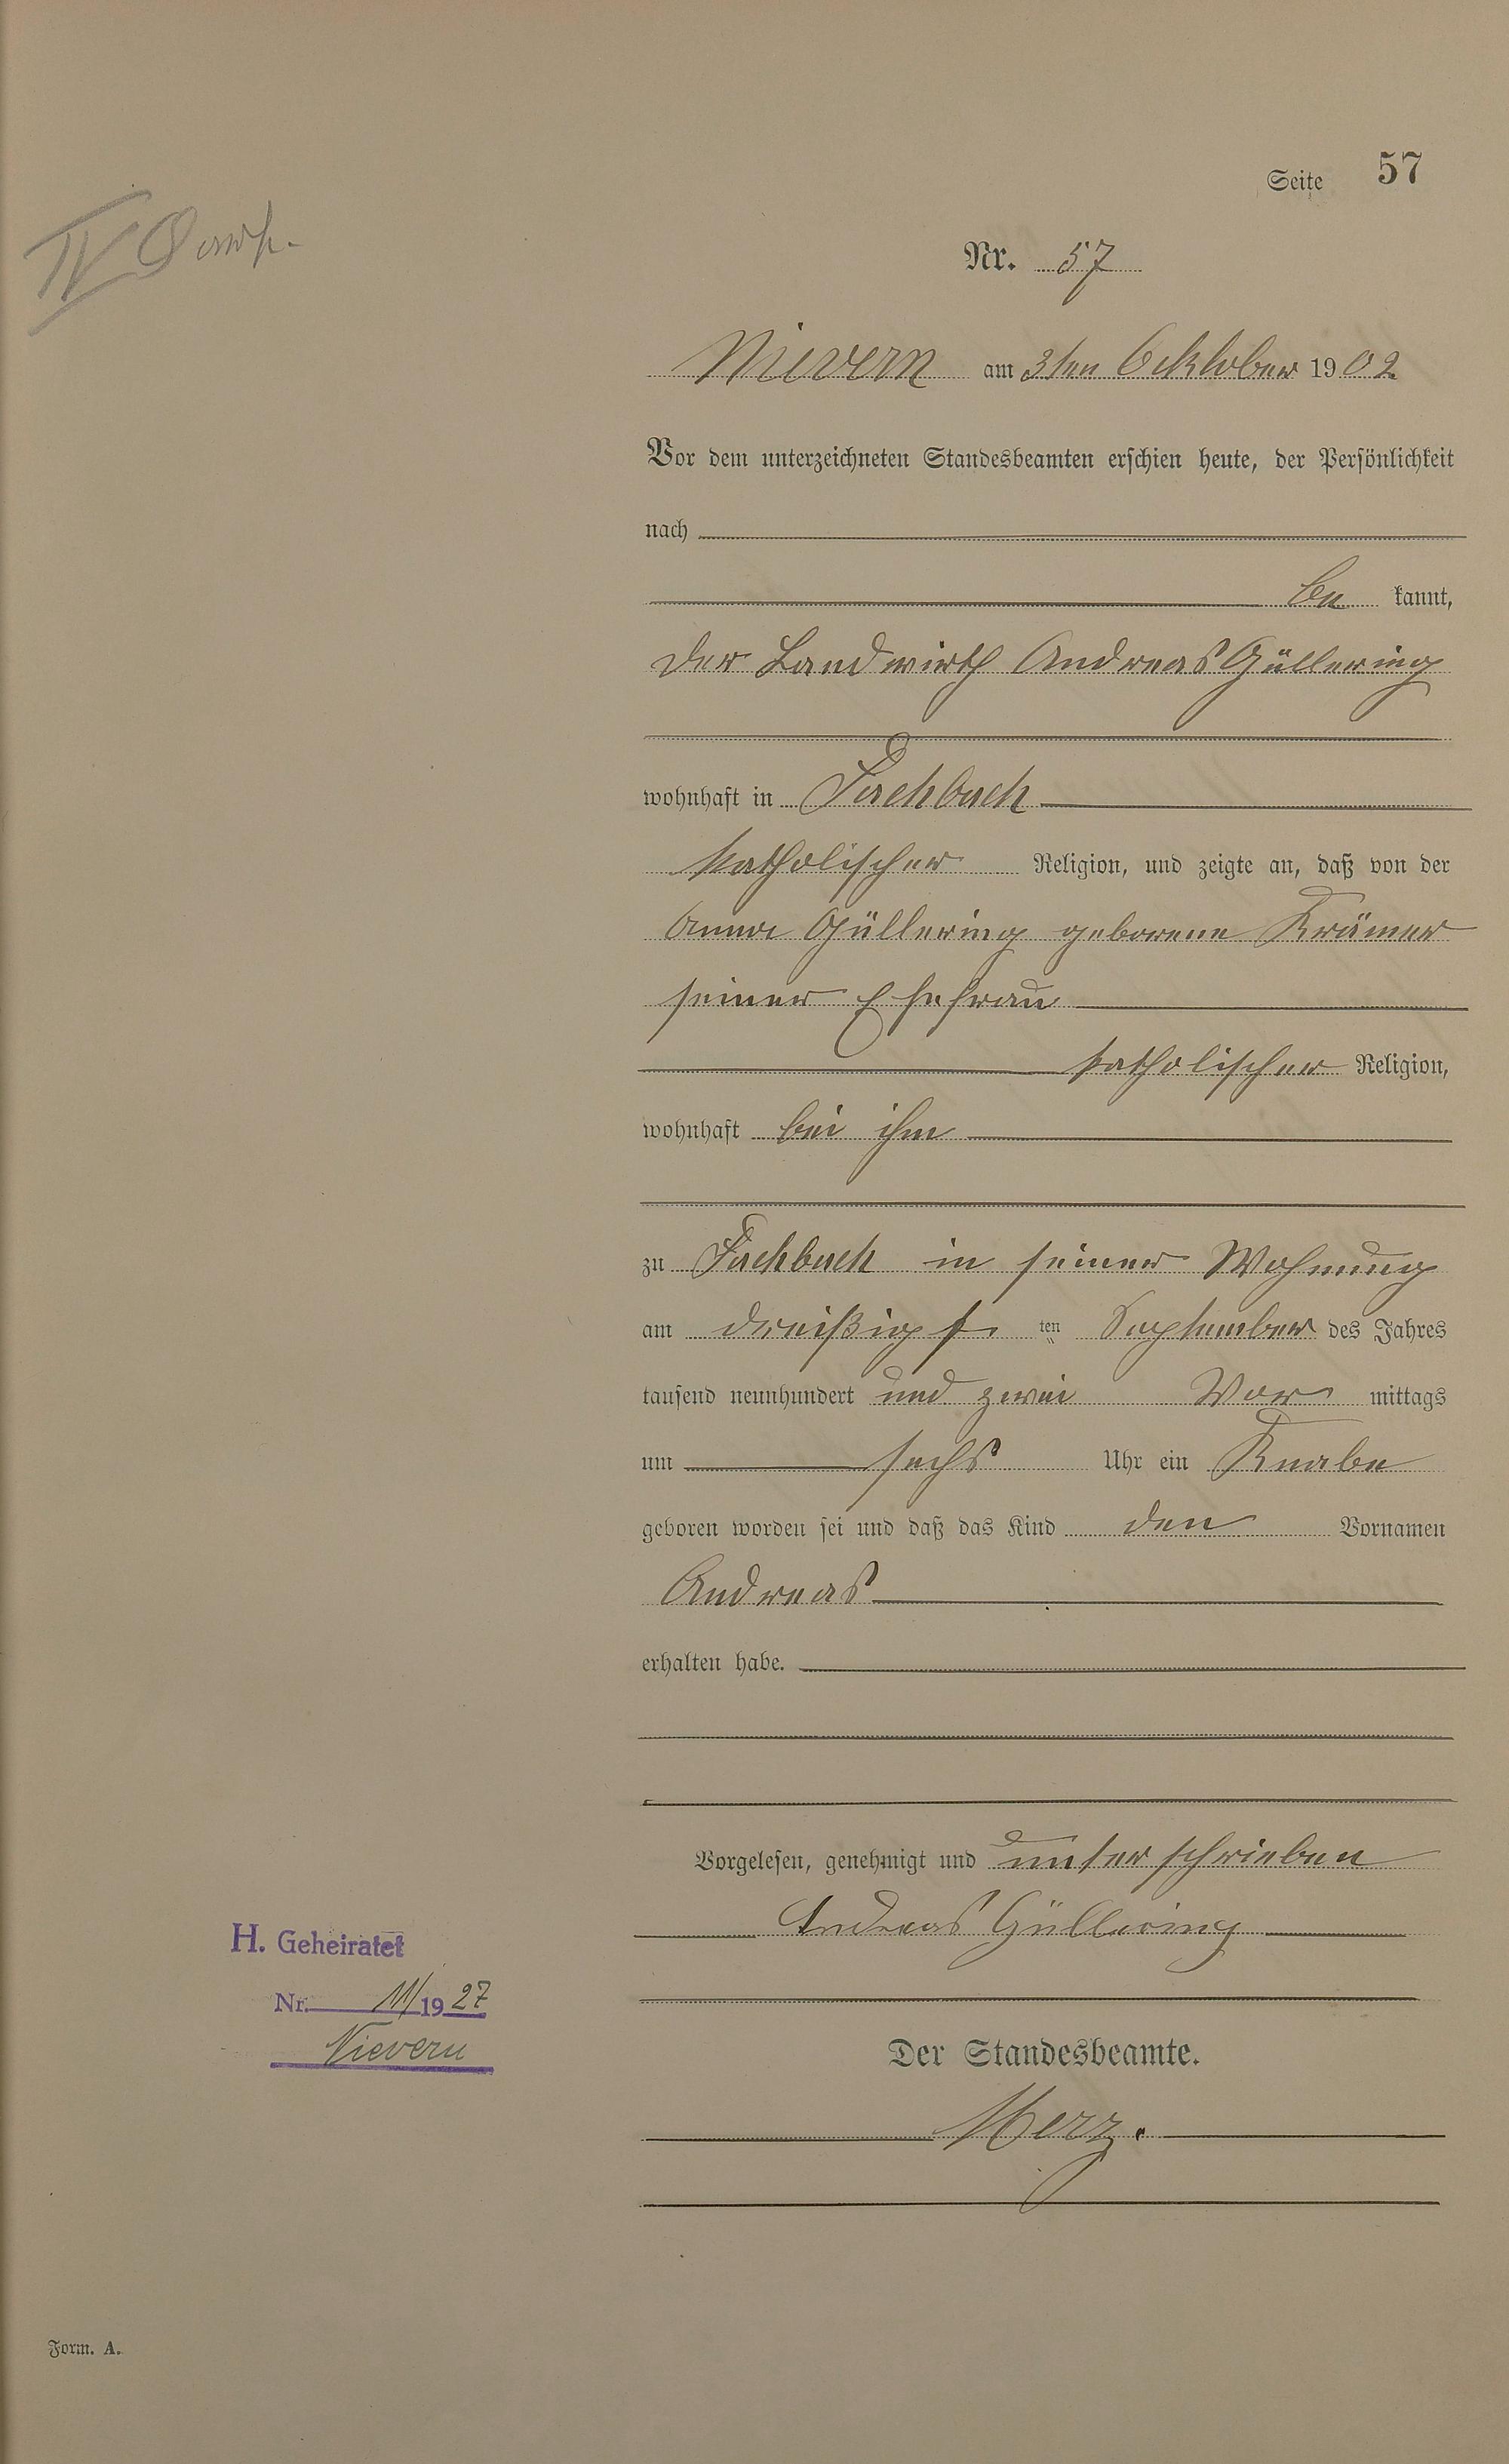 Seite 57
IV
Nr. 57
Nievern am 3ten Oktober 1902
Vor dem unterzeichneten Standesbeamten erschien heute, der Persönlichkeit
nach
be kannt,
der Landwirth Andreas Güllering
wohnhaft in Fachbach
katholischer Religion, und zeigte an, daß von der
Anna Güllering geborene Krämer
seiner Ehefrau
katholischer Religion,
wohnhaft bei ihm
zu Fachbach in seiner Wohnung
am dreißigs ten September des Jahres
tausend neunhundert und zwei Vor mittags
um sechs Uhr ein Knabe
geboren worden sei und daß das Kind den Vornamen
Andreas
erhalten habe.
Vorgelesen, genehmigt und unterschrieben
Andreas Güllering
H. Geheiratet
Nr. 11/1927
Nievern
Der Standesbeamte.
Merz.
Form. A.